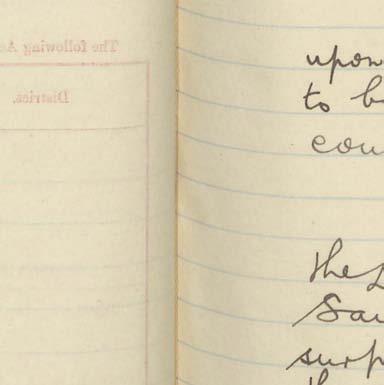 The following
District.
upon
to b
cou
the
Sau
surp